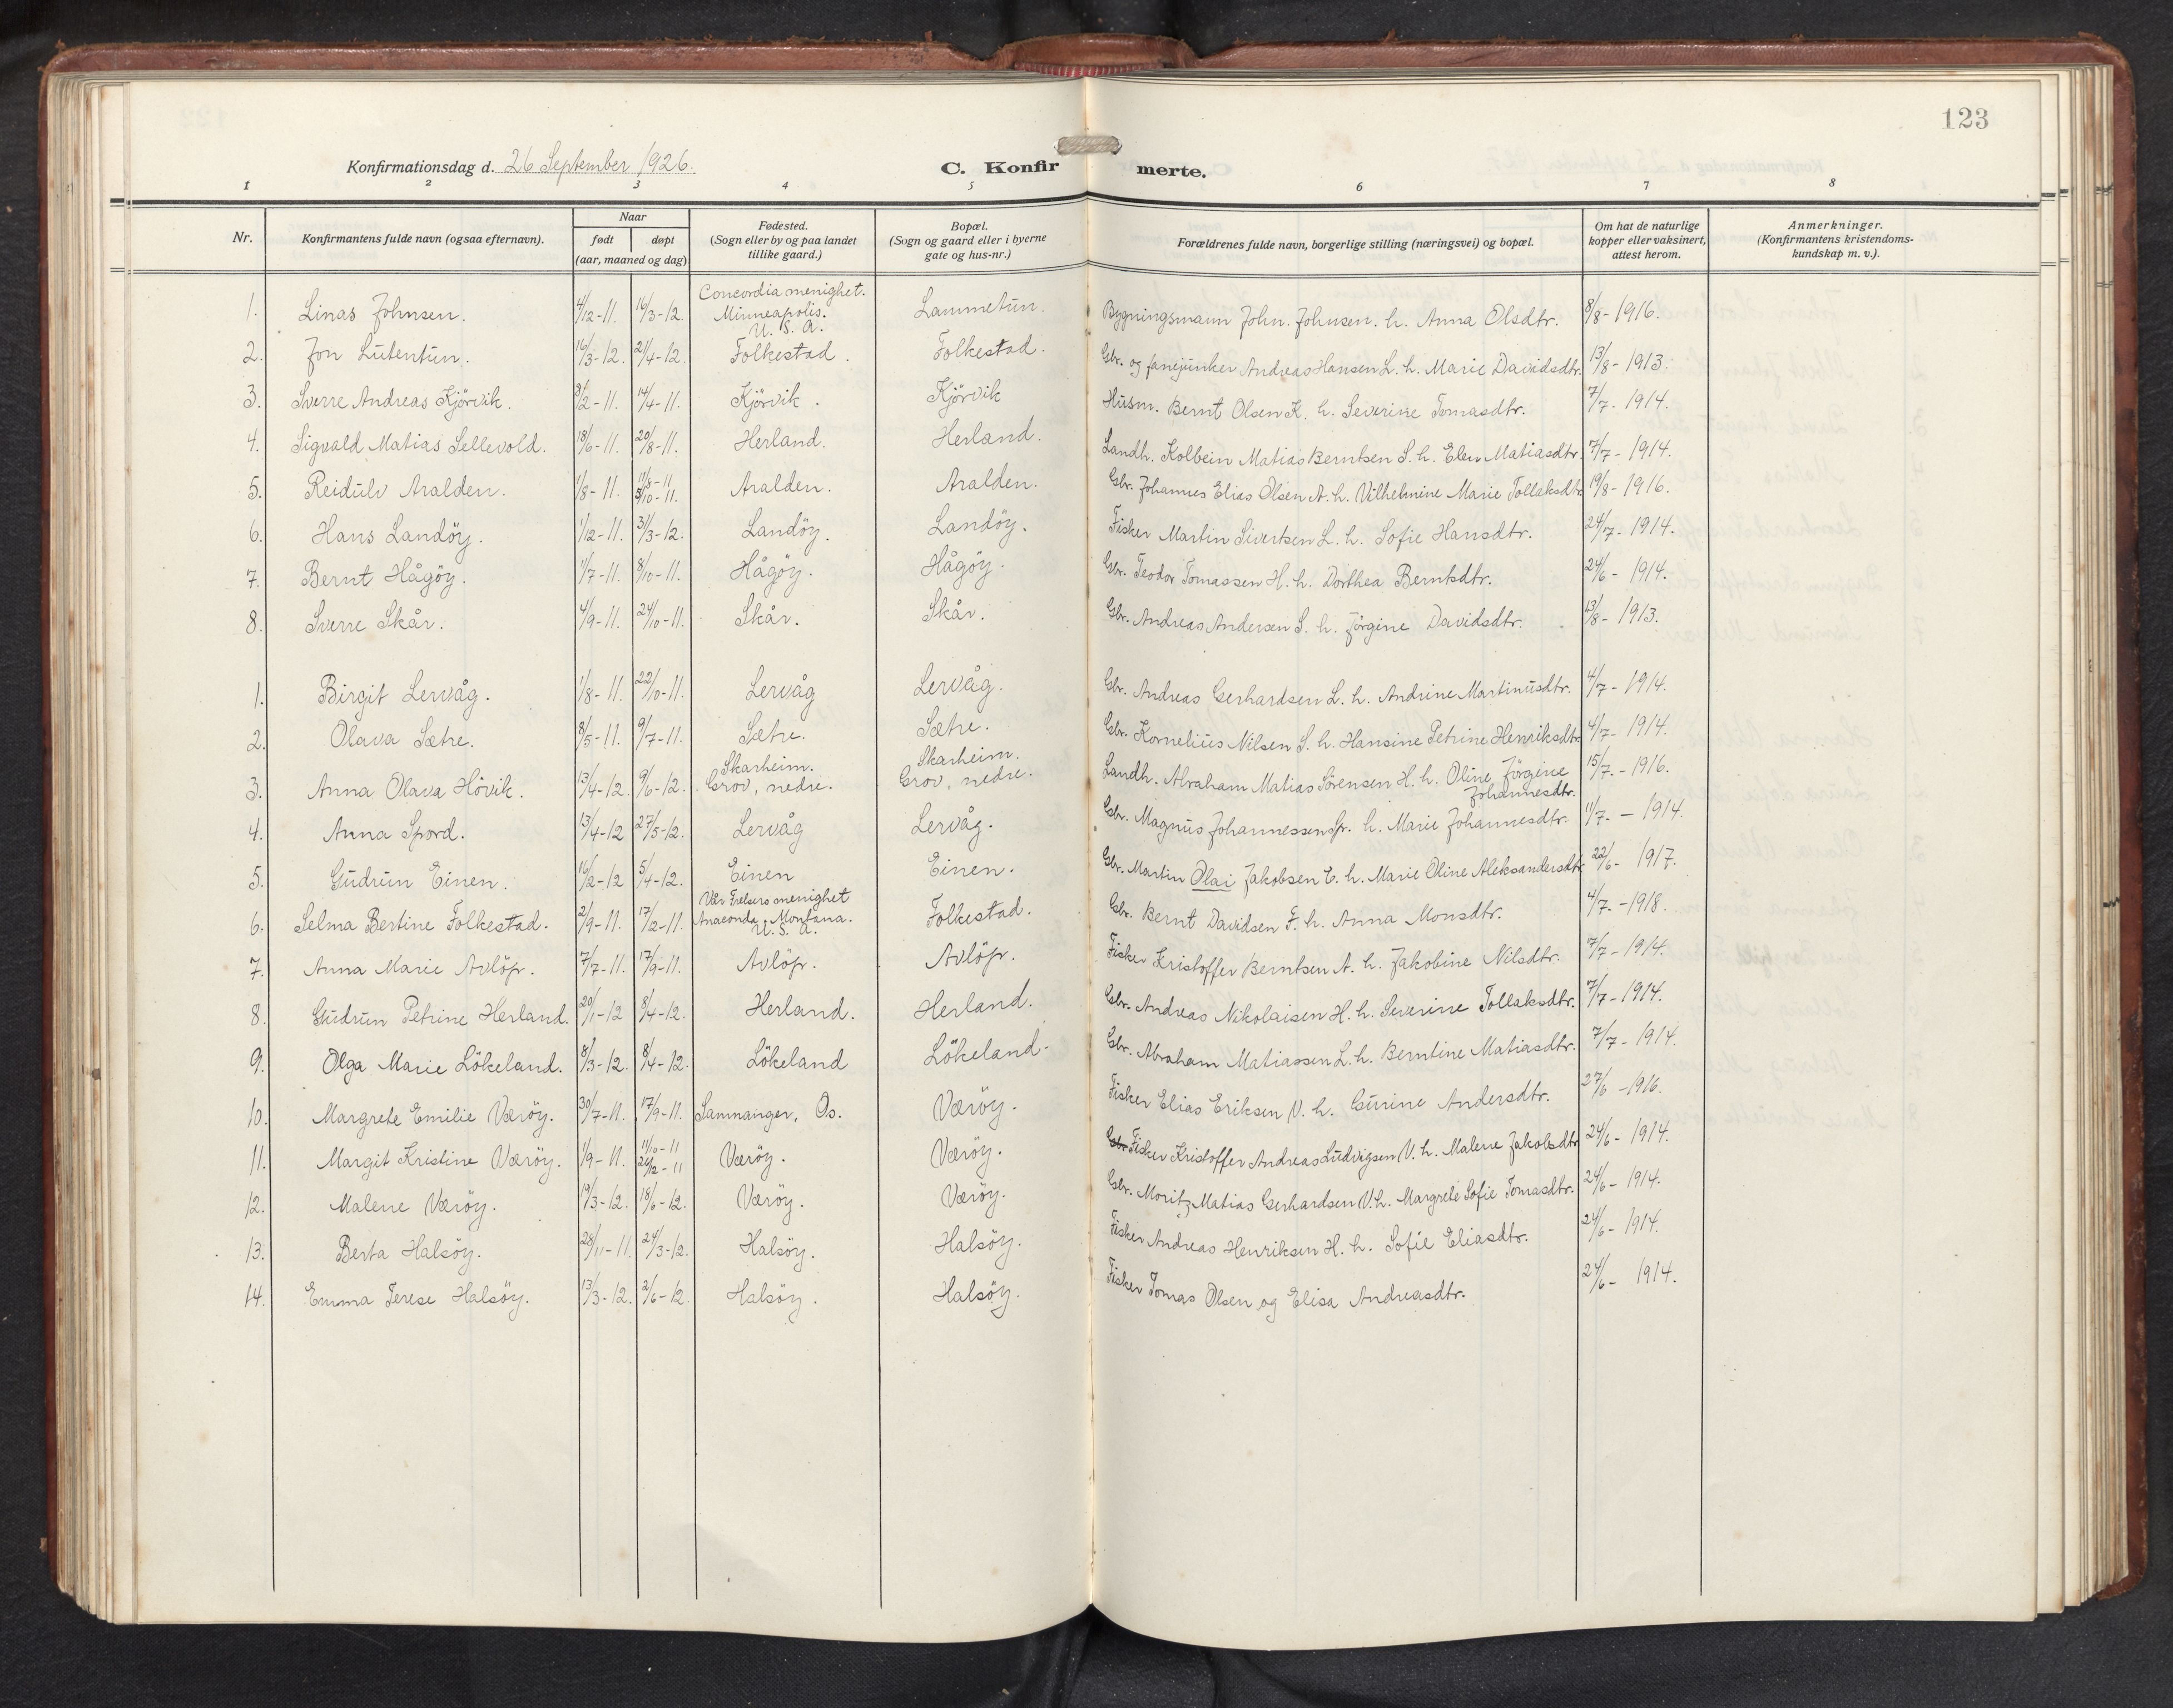 123
Konfirmationsdag d. 26 September 1926.
C. Konfir merte.
1 2 3 4 5 6 7 8
Nr.
Konfirmantens fulde navn (ogsaa efternavn).
Naar
født døpt
(aar, maaned og dag)
Fødested.
(Sogn eller by og paa landet
tillike gaard.)
Bopæl.
(Sogn og gaard eller i byerne
gate og hus-nr.)
Forældrenes fulde navn, borgerlige stilling (næringsvei) og bopæl.
Om hat de naturlige
kopper eller vaksinert,
attest herom.
Anmerkninger.
(Konfirmantens kristendoms-
kundskap m. v.).
1. Linas Johnsen. 4/12-11. 16/3-12. Concordia menighet. Minneapolis. U. S. A. Lammetun. Bygningsmann John. Johnsen. h. Anna Olsdtr. 8/8-1916.
2. Jon Lutentun. 16/3-12. 21/4-12. Folkestad. Folkestad. Gbr. og fanejunker Andreas Hansen L. h. Marie Davidsdtr. 13/8-1913.
3. Sverre Andreas Kjörvik. 8/2-11. 14/4-11. Kjörvik. Kjörvik Husm. Bernt Olsen K. h. Severine Tomasdtr. 7/7-1914.
4. Sigvald Matias Sellevold. 18/6-11. 20/8-11. Herland. Herland. Landh. Kolbein Matias Berntsen S. h. Elen Matiasdtr. 7/7-1914.
5. Reidulv Aralden. 1/8-11. 11/8-11 8/10-11. Aralden. Aralden. Gbr. Johannes Elias Olsen A. h. Vilhelmine Marie Tollaksdtr. 19/8-1916.
6. Hans Landöy. 1/12-11. 31/3-12. Landöy. Landöy. Fisker Martin Sivertsen L. h. Sofie Hansdtr. 24/7-1914.
7. Bernt Hågöy. 1/7-11. 8/10-11. Hågöy. Hågöy. Gbr. Teodor Tomassen H. h. Dorthea Berntsdtr. 24/6-1914.
8. Sverre Skår. 4/9-11. 24/10-11. Skår. Skår. Gbr. Andreas Andersen S. h. Jörgine Davidsdtr. 13/8-1913.
1. Birgit Lervåg. 1/8-11. 22/10-11. Lervåg Lervåg. Gbr. Andreas Gerhardsen L. h. Andrine Martinusdtr. 4/7-1914.
2. Olava Sætre. 8/5-11. 9/7-11. Sætre. Sætre. Gbr. Kornelius Nilsen S. h. Hansine Petrine Henriksdtr. 4/7-1914.
3. Anna Olava Hövik. 13/4-12. 9/6-12. Skarheim. Grov, nedre. Skarheim. Grov, nedre. Landh. Abraham Matias Sörensen H. h. Oline Jörgine Johannesdtr. 15/7-1916.
4. Anna Spord. 13/4-12 27/5-12. Lervåg Lervåg. Gbr. Magnus Johannessen Sp. h. Marie Johannesdtr. 11/7-1914.
5. Gudrun Einen. 16/2-12 5/4-12. Einen Einen. Gbr. Martin Olai Jakobsen E. h. Marie Oline Aleksandersdtr. 22/6-1917.
6. Selma Bertine Folkestad. 2/9-11. 17/2-11. Vår Frelsers menighet Anaconda. Montana. U. S. A. Folkestad. Gbr. Bernt Davidsen F. h. Anna Monsdtr. 4/7-1918.
7. Anna Marie Avlöp. 7/7-11. 17/9-11. Avlöp. Avlöp. Fisker Kristoffer Berntsen A. h. Jakobine Nilsdtr. 7/7-1914.
8. Gudrun Petrine Herland. 20/1-12 8/4-12. Herland. Herland. Gbr. Andreas Nikolaisen H. h. Severine Tollaksdtr. 7/7-1914.
9. Olga Marie Lökeland. 8/3-12. 8/4-12. Lökeland Lökeland. Gbr. Abraham Matiassen L. h. Berntine Matiasdtr. 7/7-1914.
10. Margrete Emilie Væröy. 30/7-11. 17/9-11. Samnanger, Os. Væröy. Fisker Elias Eriksen V. h. Gurine Andersdtr. 27/6-1916.
11. Margit Kristine Væröy. 1/9-11. 11/10-11 26/12-11 Væröy. Væröy. Gbr Fisker Kristoffer Andreas Ludvigsen V. h. Malene Jakobsdtr 24/6-1914.
12. Malene Væröy. 19/3-12. 18/6-12. Væröy. Væröy. Gbr. Moritz Matias Gerhardsen V. h. Margrete Sofie Tomasdtr. 24/6-1914.
13. Berta Halsöy. 28/11-11. 24/3-12. Halsöy. Halsöy. Fisker Andreas Henriksen H. h. Sofie Eliasdtr. 24/6-1914.
14. Emma Terese Halsöy. 13/3-12. 2/6-12. Halsöy. Halsöy. Fisker Tomas Olsen og Elisa Andreasdtr. 24/6-1914.